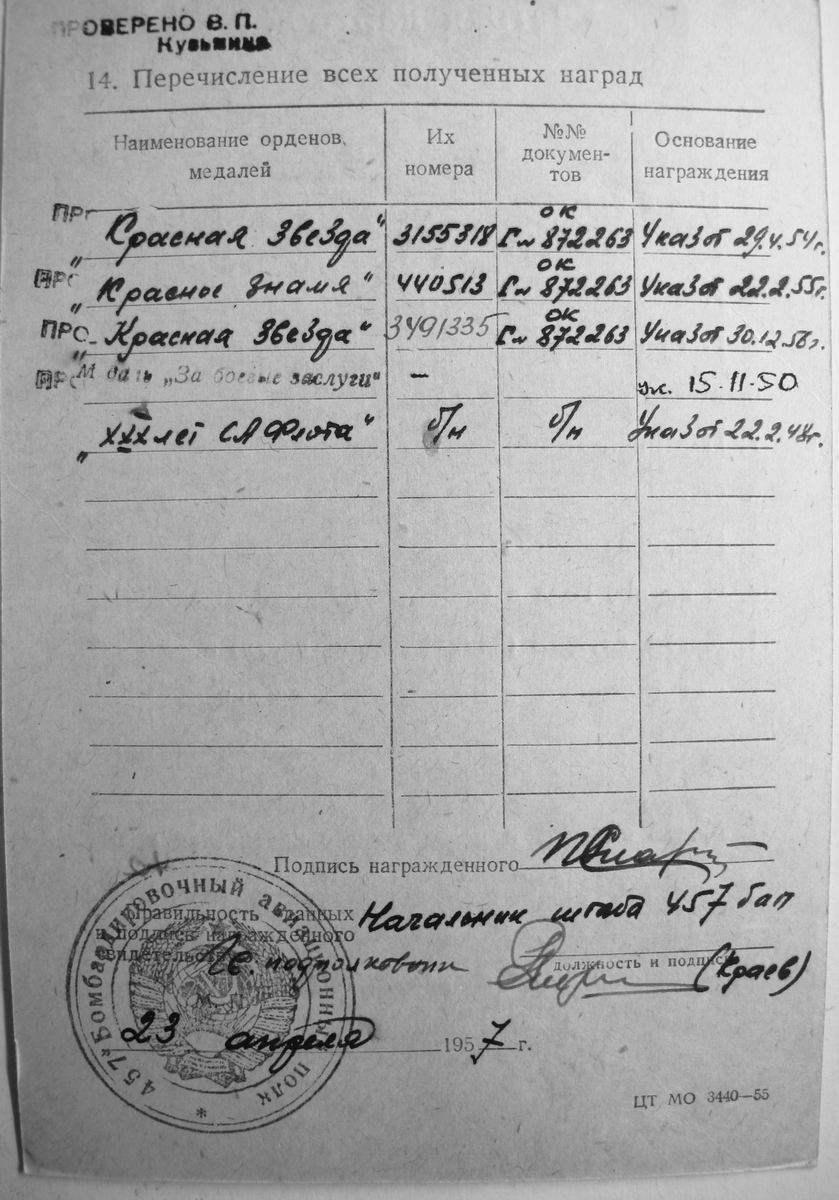 ПРОВЕРЕНО В. П.
Кузьмина
14. Перечисление всех полученных наград
Наименование орденов, медалей
Их номера
№№ докумен-тов
Основание награждения
„Красная Звезда“ 3155318 ОК Гл 872263 Указ от 29.4.54г.
„Красное Знамя“ 440513 ОК Гл 872263 Указ от 22.2.55г.
„Красная Звезда“ 3491335 ОК Гл 872263 Указ от 30.12.56г.
М даль „За боевые заслуги“ — ук. 15.11.50
„XXX лет СА Флота“ б/н б/н Указ от 22.2.48г.
Подпись награжденного
Правильность данных
и подпись награжденного
Начальник штаба 457 бап
Гв. подполковник
должность и подпись
(Краев)
М. П.
23 апреля 1957 г.
457 Бомбардировочный авиационный полк
ЦТ МО 3440—55